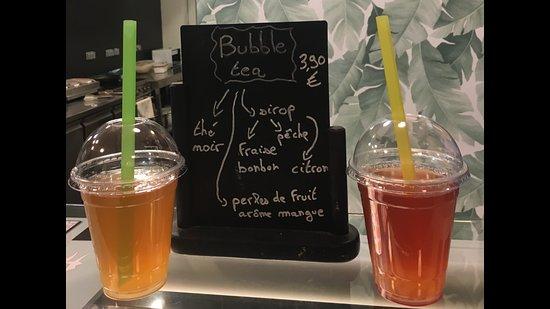 Bubble
tea
3,90
€
sirop
thé
noir
pêche
Fraise
bonbon
citron
perles de Fruit
arôme mangue